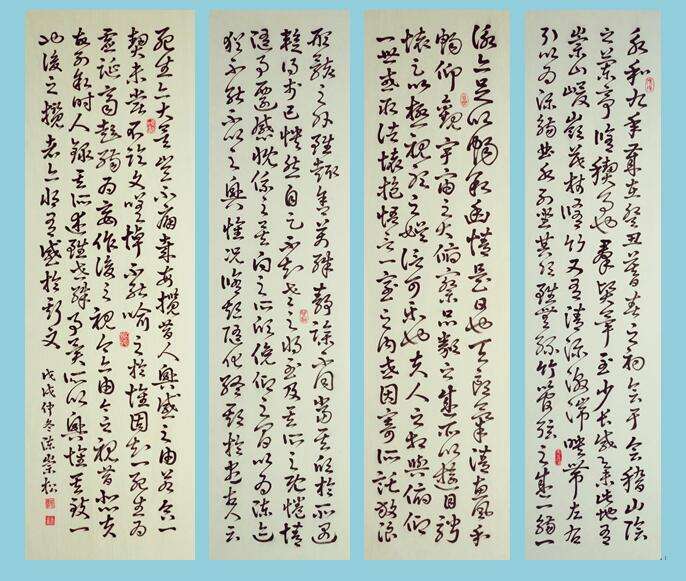 永和九年歲在癸丑暮春之初會于會稽山陰
之蘭亭脩禊事也羣賢畢至少長咸集此地有
崇山峻嶺茂林脩竹又有清流激湍映帶左右
引以為流觴曲水列坐其次雖無絲竹管弦之盛一觴一
詠亦足以暢敘幽情是日也天朗氣清惠風和
暢仰觀宇宙之大俯察品類之盛所以遊目騁
懷足以極視聽之娛信可樂也夫人之相與俯仰
一世或取諸懷抱悟言一室之內或因寄所託放浪
形骸之外雖趣舍萬殊靜躁不同當其欣於所遇
蹔得於己快然自足不知老之將至及其所之既倦情
隨事遷感慨係之矣向之所欣俛仰之間以為陳迹
猶不能不以之興懷況脩短隨化終期於盡古人云
死生亦大矣豈不痛哉每攬昔人興感之由若合一
契未嘗不臨文嗟悼不能喻之於懷固知一死生為
虛誕齊彭殤為妄作後之視今亦由今之視昔悲夫
故列敘時人錄其所述雖世殊事異所以興懷其致一
也後之攬者亦將有感於斯文
戊戌仲冬陳崇松